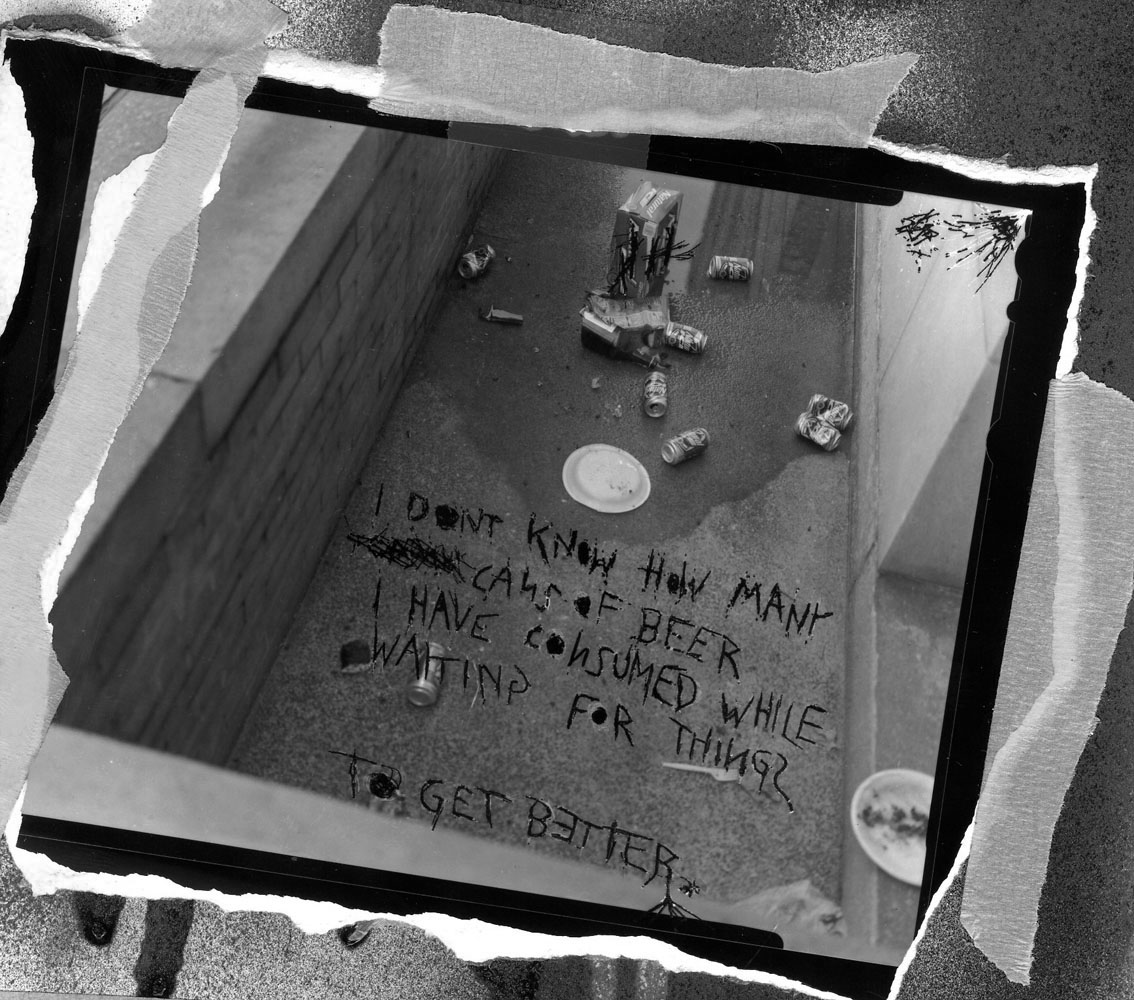 I DONT KNOW HOW MANY
CANS OF BEER
I HAVE CONSUMED WHILE
WAITING FOR THINGS
TO GET BETTER.
Natural